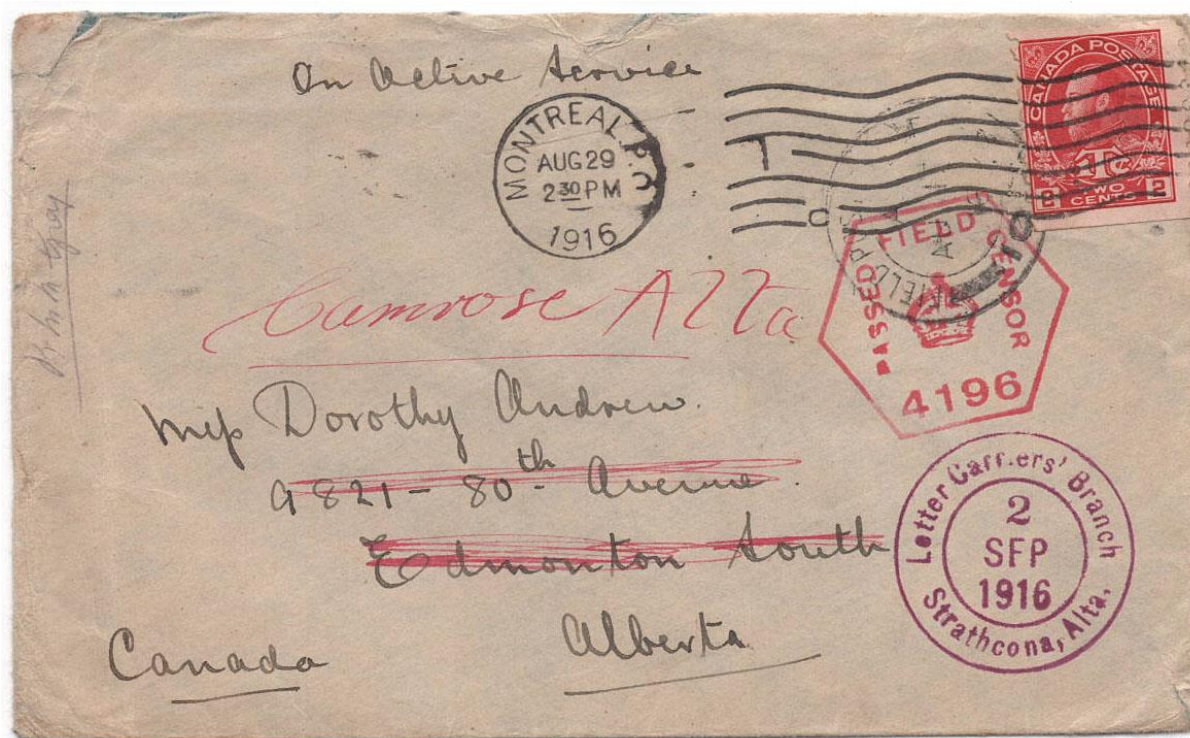 On Active Service
MONTREAL, P.Q.
AUG 29
2 30 PM
1916
CANADA POSTAGE
1Tc
2 TWO 2
CENTS
T
C
10
FIELD
PASSED FIELD CENSOR
4196
Camrose Alta
Miss Dorothy Andrew.
9821 - 80th Avenue.
Edmonton South
Alberta
Canada
Letter Carriers' Branch
2
SEP
1916
Strathcona, Alta.